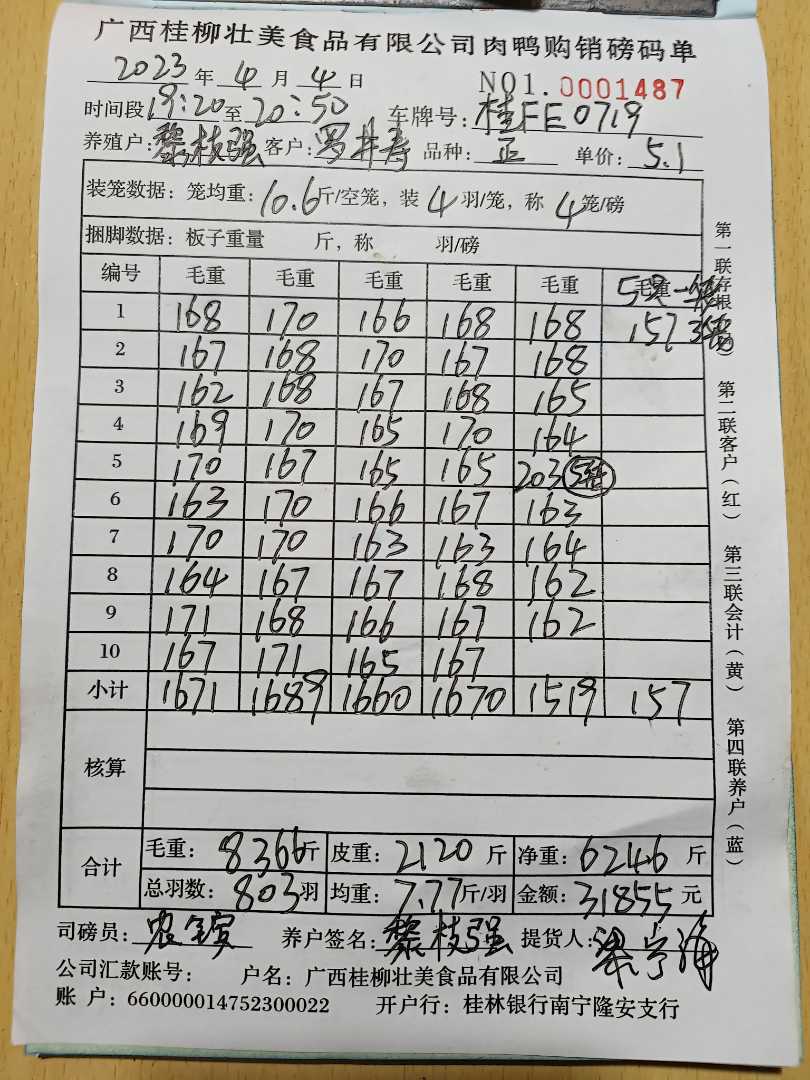 广西桂柳壮美食品有限公司肉鸭购销磅码单
2023 年 4 月 4 日 NO1. 0001487
时间段 19:20 至 20:50 车牌号: 桂FE0719
养殖户: 黎枝强 客户: 罗井寿 品种: 正 单价: 5.1
装笼数据: 笼均重: 10.6 斤/空笼, 装 4 羽/笼, 称 4 笼/磅
捆脚数据: 板子重量 斤, 称 羽/磅
编号 毛重 毛重 毛重 毛重 毛重 毛重
1 168 170 166 168 168 157
2 167 168 170 167 168
3 162 168 167 168 165
4 169 170 165 170 164
5 170 167 165 165 203
6 163 170 166 167 163
7 170 170 163 163 164
8 164 167 167 168 162
9 171 168 166 167 162
10 167 171 165 167
小计 1671 1689 1660 1670 1519 157
核算
合计
毛重: 8366 斤 皮重: 2120 斤 净重: 6246 斤
总羽数: 803 羽 均重: 7.77 斤/羽 金额: 31855 元
司磅员: 养户签名: 黎枝强 提货人:
公司汇款账号: 户名: 广西桂柳壮美食品有限公司
账 户: 660000014752300022 开户行: 桂林银行南宁隆安支行
第一联存根
第二联客户(红)
第三联会计(黄)
第四联养户(蓝)